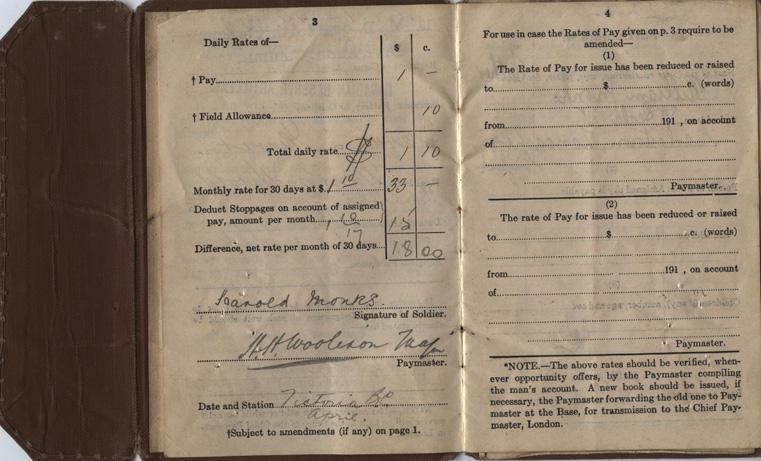 3
Daily Rates of—
$ c.
† Pay 1 —
† Field Allowance 10
Total daily rate 1 10
Monthly rate for 30 days at $ 1 10 33 —
Deduct Stoppages on account of assigned
pay, amount per month 15
Difference, net rate per month of 30 days 18 00
Harold Monks.
Signature of Soldier.
Paymaster.
Date and Station Victoria BC
April.
†Subject to amendments (if any) on page 1.
4
For use in case the Rates of Pay given on p. 3 require to be
amended—
(1)
The Rate of Pay for issue has been reduced or raised
to $ c. (words)
from 191 , on account
of
Paymaster.
(2)
The rate of Pay for issue has been reduced or raised
to $ c. (words)
from 191 , on account
of
Paymaster.
*NOTE.—The above rates should be verified, when-
ever opportunity offers, by the Paymaster compiling
the man's account. A new book should be issued, if
necessary, the Paymaster forwarding the old one to Pay-
master at the Base, for transmission to the Chief Pay-
master, London.